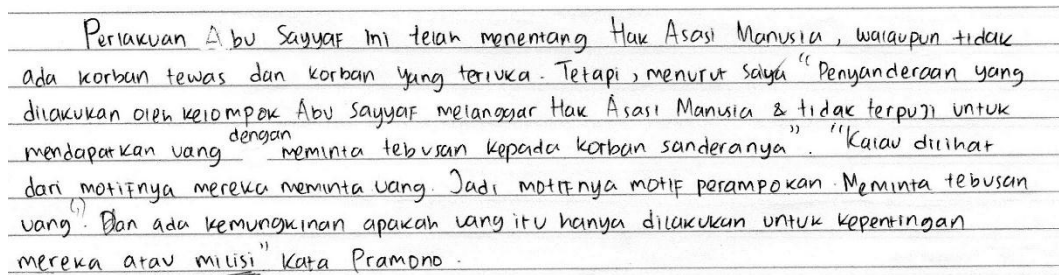 Perlakuan Abu Sayyaf ini telah menentang Hak Asasi Manusia, walaupun tidak
ada korban tewas dan korban yang terluka. Tetapi, menurut saya " Penyanderaan yang
dilakukan oleh kelompok Abu Sayyaf melanggar Hak Asasi Manusia & tidak terpuji untuk
mendapatkan uang dengan meminta tebusan kepada korban sanderanya". "Kalau dilihat
dari motifnya mereka meminta uang. Jadi motifnya motif perampokan. Meminta tebusan
uang(,)". Dan ada kemungkinan apakah uang itu hanya dilakukan untuk kepentingan
mereka atau milisi" kata Pramono.